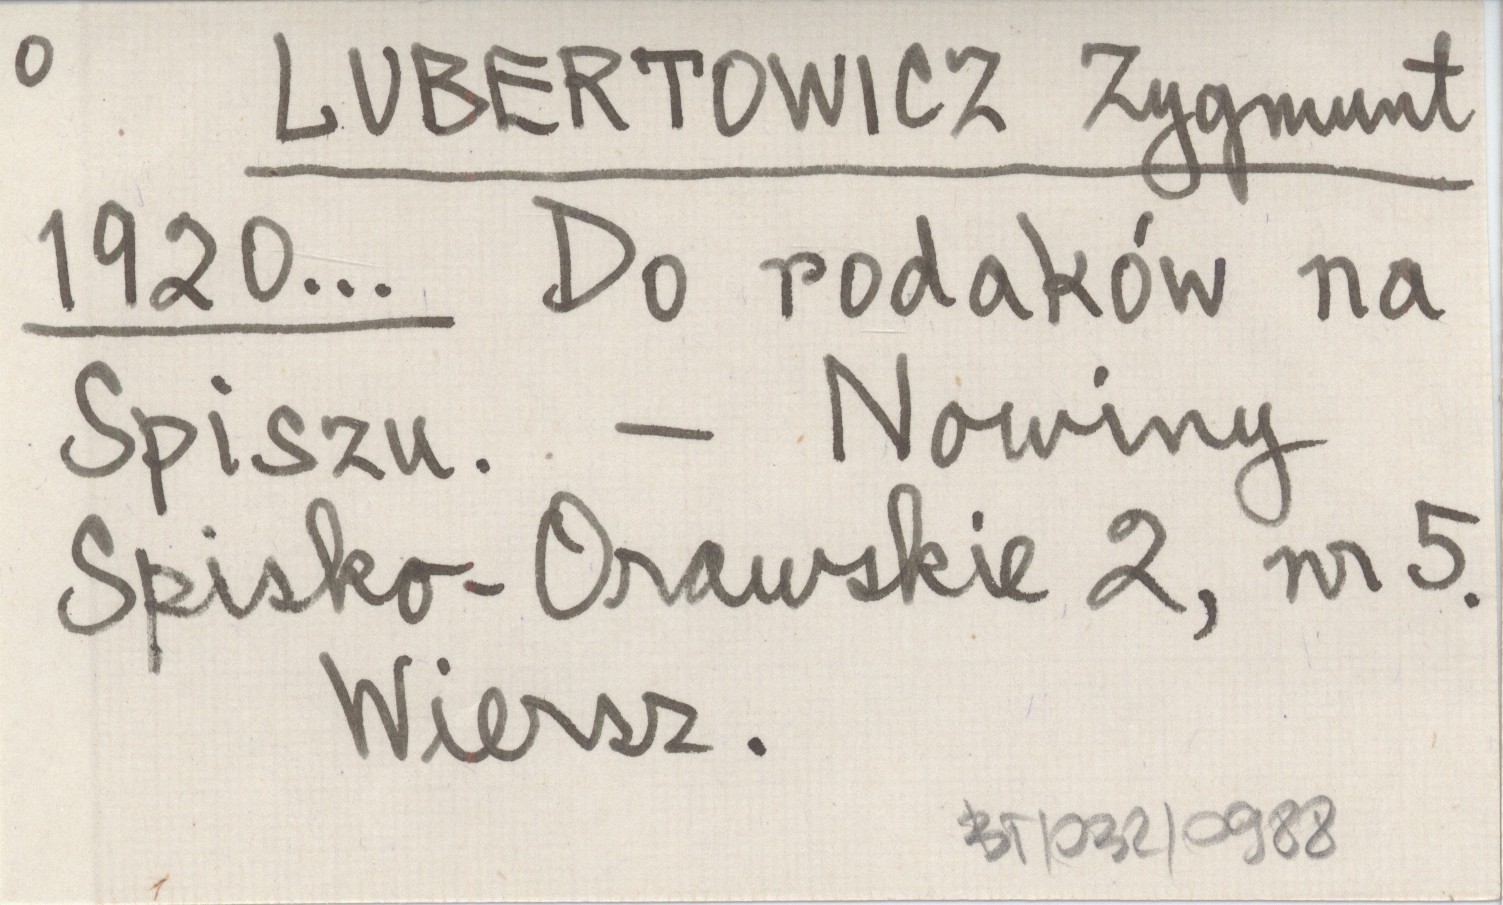 o LUBERTOWICZ Zygmunt
1920... Do rodaków na
Spiszu. – Nowiny
Spisko-Orawskie 2, nr 5.
Wiersz.
BT/032/0988